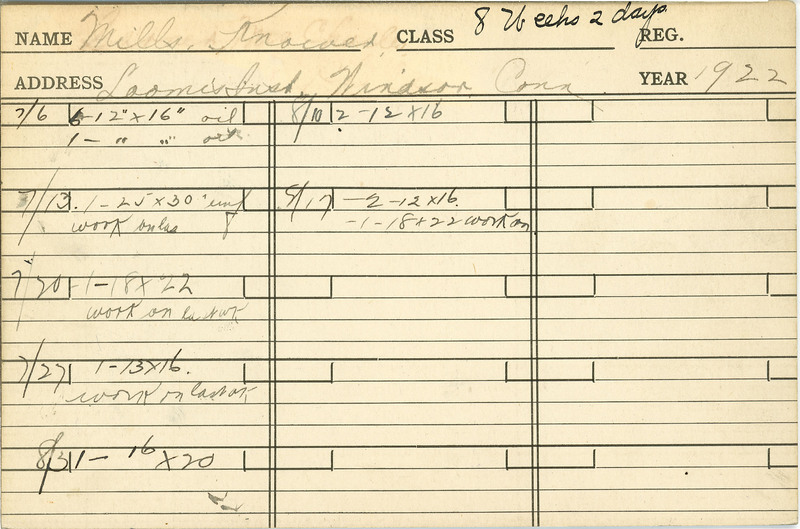 NAME Mills, CLASS 8 Weeks 2 days REG.
ADDRESS Loomis Inst. Windsor Conn YEAR 1922
7/6 6-12"x16" oil
1- " " oil
7/13. 1-25x30
work on las
7/20 1-18x22
work on last wk
7/27 1-13x16.
work on last wk
8/3 1- 16x20
8/10 2-12x16
8/17 -2-12x16.
-1-18x22 work on